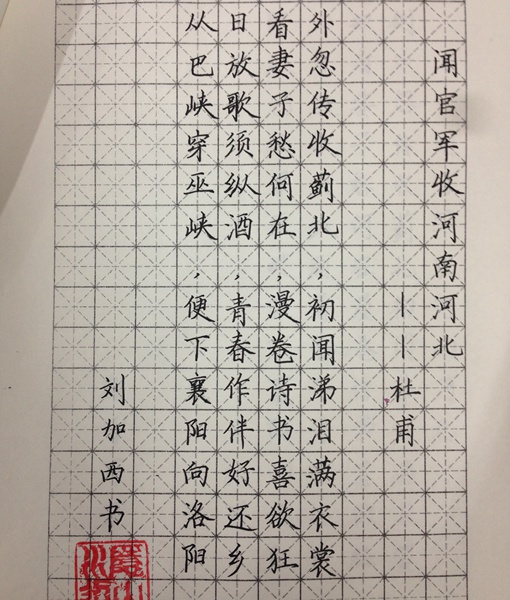 闻官军收河南河北
——杜甫
外忽传收蓟北，初闻涕泪满衣裳
看妻子愁何在，漫卷诗书喜欲狂
日放歌须纵酒，青春作伴好还乡
从巴峡穿巫峡，便下襄阳向洛阳
刘加西书